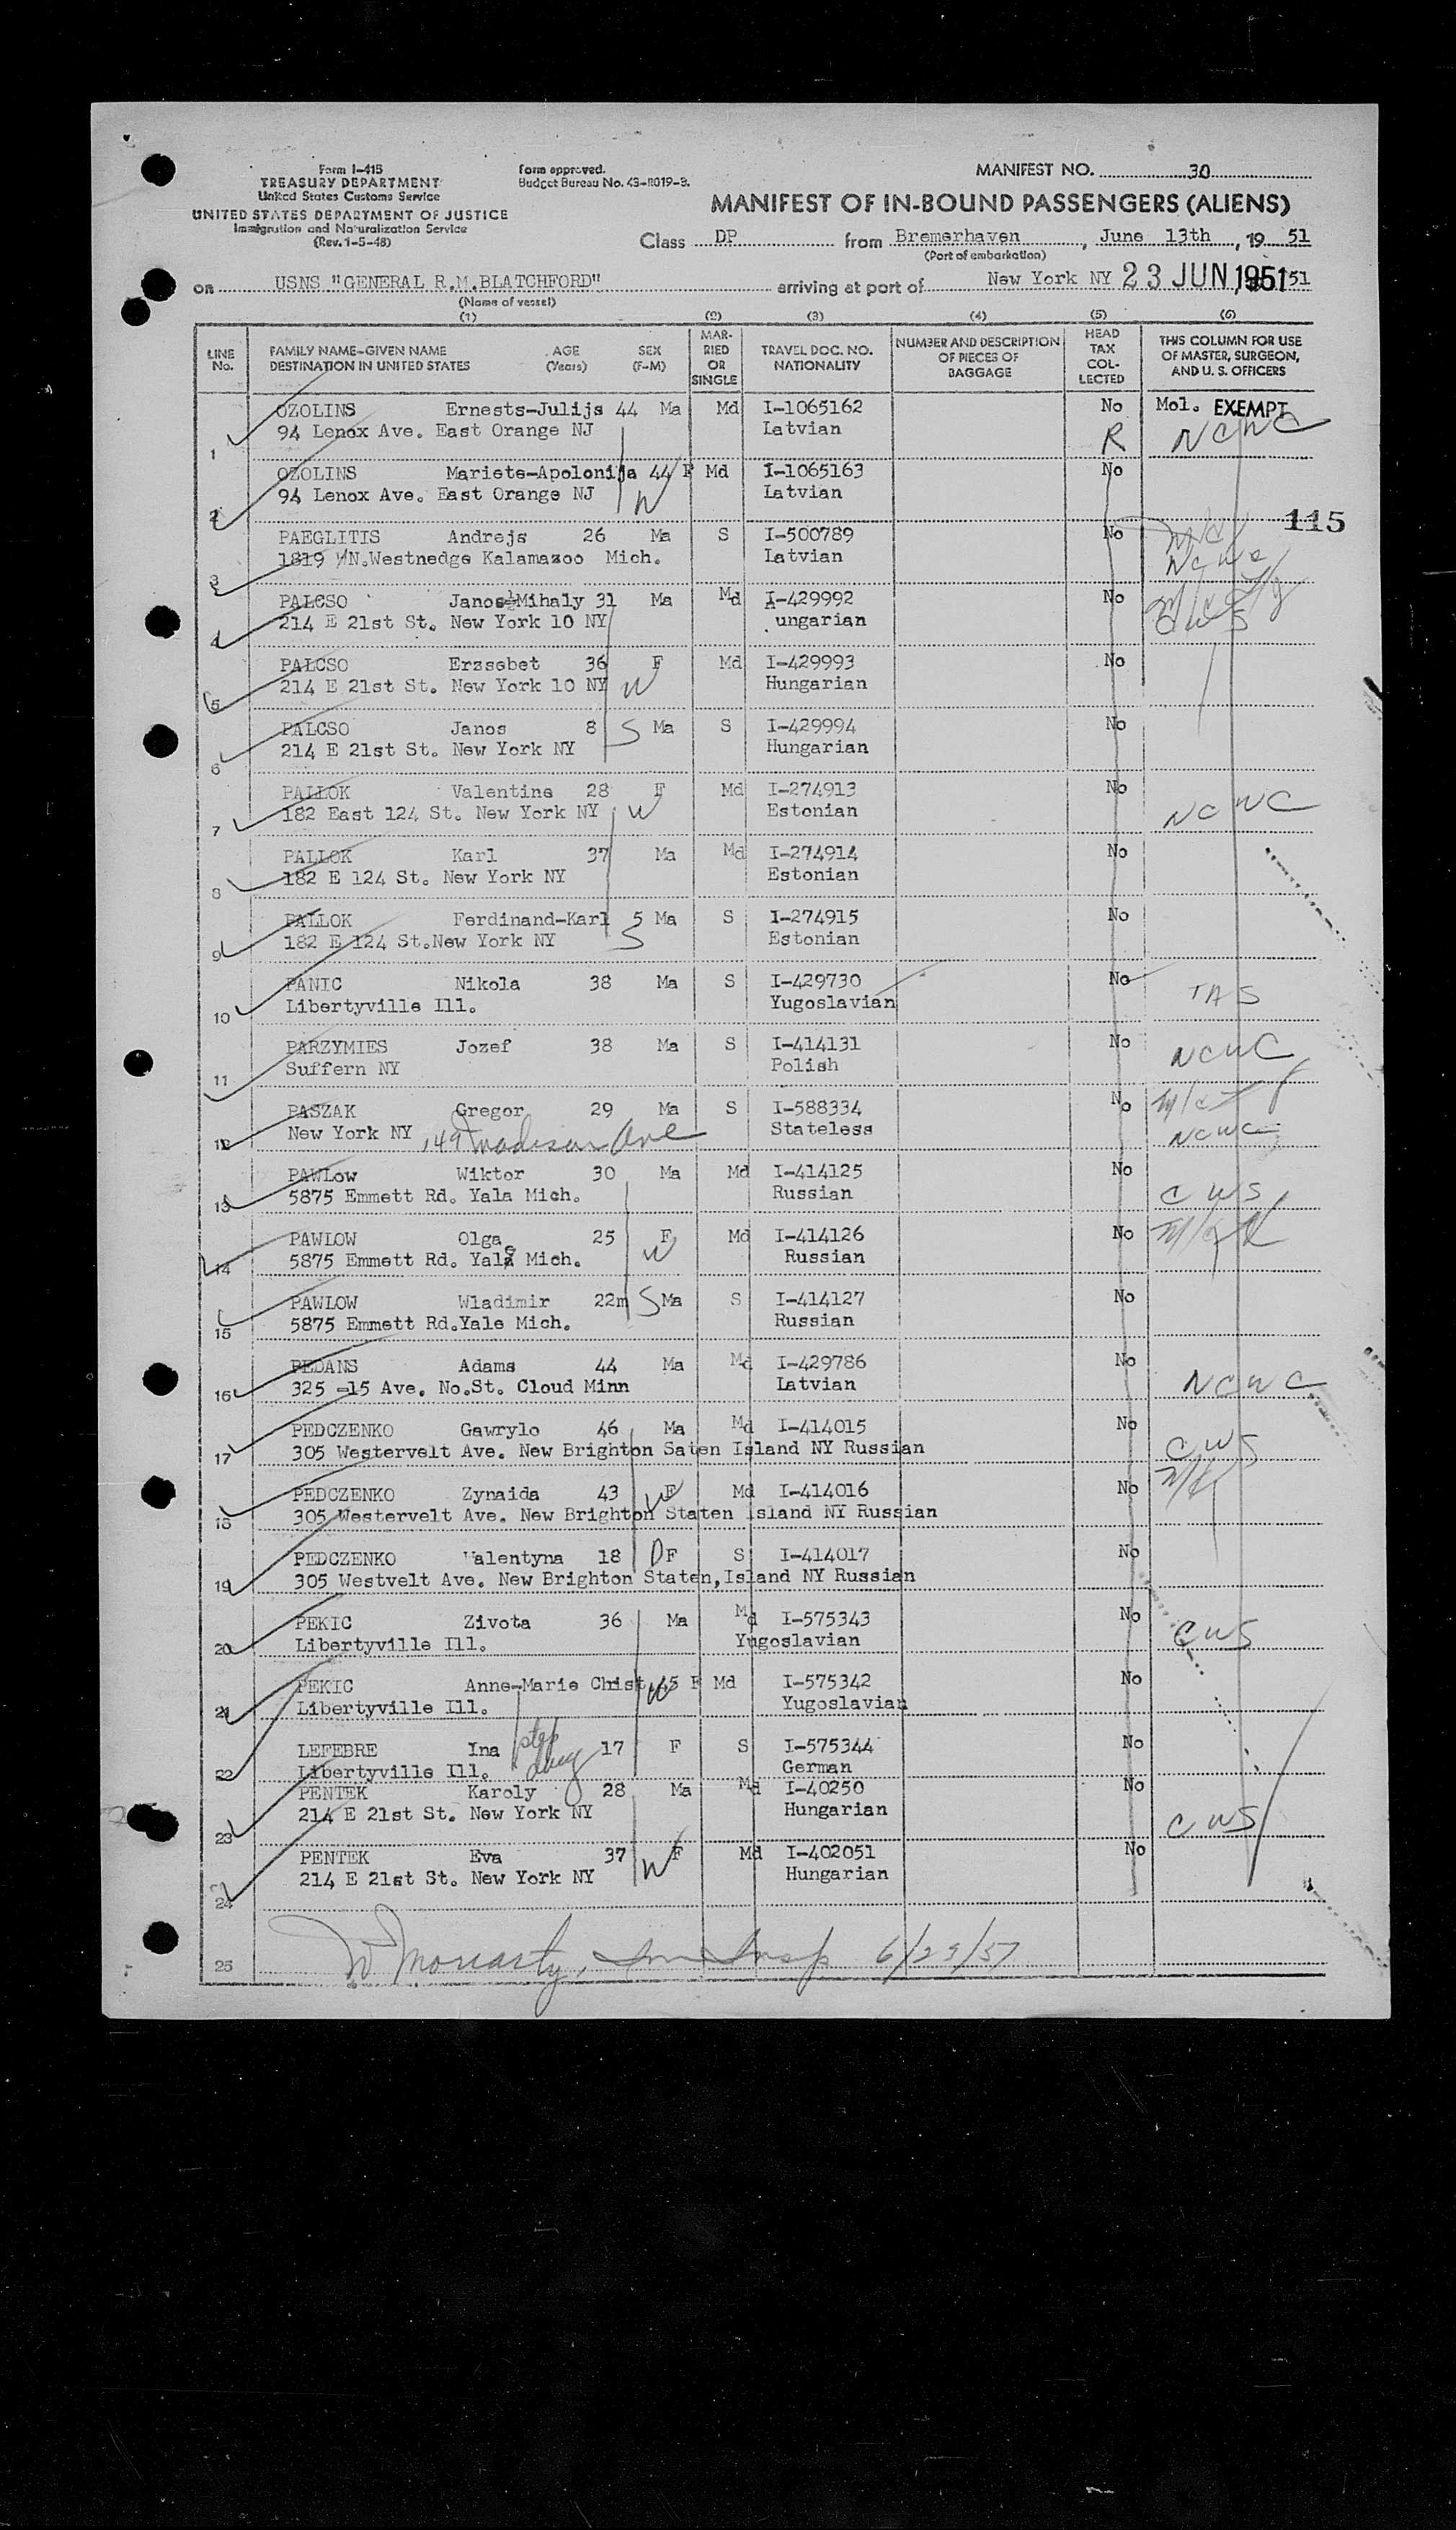 Form I-415
TREASURY DEPARTMENT
United States Customs Service
UNITED STATES DEPARTMENT OF JUSTICE
Immigration and Naturalization Service
(Rev. 1-5-48)
Form approved.
Budget Bureau No. 43-R019-3.
MANIFEST NO. 30
MANIFEST OF IN-BOUND PASSENGERS (ALIENS)
Class DP from Bremerhaven, June 13th, 19 51
(Port of embarkation)
on USNS "GENERAL R.M.BLATCHFORD" arriving at port of New York NY 23 JUN 1951 51
(Name of vessel)
(1) (2) (3) (4) (5) (6)
LINE No.
FAMILY NAME-GIVEN NAME AGE SEX
DESTINATION IN UNITED STATES (Years) (F-M)
MARRIED OR SINGLE
TRAVEL DOC. NO. NATIONALITY
NUMBER AND DESCRIPTION OF PIECES OF BAGGAGE
HEAD TAX COLLECTED
THIS COLUMN FOR USE OF MASTER, SURGEON, AND U. S. OFFICERS
OZOLINS Ernests-Julijs 44 Ma Md I-1065162 No Mol. EXEMPT
1 94 Lenox Ave. East Orange NJ Latvian R NCWC
OZOLINS Mariete-Apolonija 44 F Md I-1065163 No
2 94 Lenox Ave. East Orange NJ W Latvian
115
PAEGLITIS Andrejs 26 Ma S I-500789 No
3 1819 N.Westnedge Kalamazoo Mich. Latvian NCWC
PALCSO Janos-Mihaly 31 Ma Md I-429992 No
4 214 E 21st St. New York 10 NY ungarian CWS
PALCSO Erzsebet 36 F Md I-429993 No
5 214 E 21st St. New York 10 NY W Hungarian
PALCSO Janos 8 S Ma S I-429994 No
6 214 E 21st St. New York NY Hungarian
PALLOK Valentine 28 F Md I-274913 No
7 182 East 124 St. New York NY W Estonian NCWC
PALLOK Karl 37 Ma Md I-274914 No
8 182 E 124 St. New York NY Estonian
PALLOK Ferdinand-Karl 5 Ma S I-274915 No
9 182 E 124 St.New York NY S Estonian
PANIC Nikola 38 Ma S I-429730 No
10 Libertyville Ill. Yugoslavian TAS
PARZYMIES Jozef 38 Ma S I-414131 No
11 Suffern NY Polish NCWC
PASZAK Gregor 29 Ma S I-588334 No
12 New York NY 149 Madison Ave Stateless NCWC
PAWLow Wiktor 30 Ma Md I-414125 No
13 5875 Emmett Rd. Yala Mich. Russian CWS
PAWLOW Olga 25 F Md I-414126 No
14 5875 Emmett Rd. Yale Mich. W Russian
PAWLOW Wladimir 22m S Ma S I-414127 No
15 5875 Emmett Rd.Yale Mich. Russian
PEDANS Adams 44 Ma Md I-429786 No
16 325 -15 Ave. No.St. Cloud Minn Latvian NCWC
PEDCZENKO Gawrylo 46 Ma Md I-414015 No
17 305 Westervelt Ave. New Brighton Saten Island NY Russian CWS
PEDCZENKO Zynaida 43 W F Md I-414016 No
18 305 Westervelt Ave. New Brighton Staten Island NY Russian
PEDCZENKO Valentyna 18 D F S I-414017 No
19 305 Westvelt Ave. New Brighton Staten,Island NY Russian
PEKIC Zivota 36 Ma Md I-575343 No
20 Libertyville Ill. Yugoslavian CWS
PEKIC Anne-Marie Christ 45 W F Md I-575342 No
21 Libertyville Ill. Yugoslavian
LEFEBRE Ina step 17 F S I-575344 No
22 Libertyville Ill. daug German
PENTEK Karoly 28 Ma Md I-40250 No
23 214 E 21st St. New York NY Hungarian CWS
PENTEK Eva 37 F Md I-402051 No
24 214 E 21st St. New York NY W Hungarian
25 W Moriarty, Im Insp 6/23/51